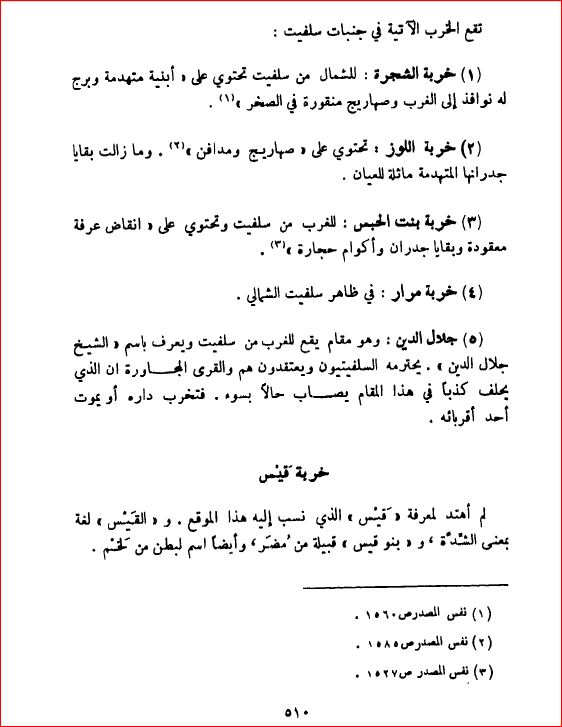 تقع الخرب الآتية في جنبات سلفيت :
(١) خربة الشجرة : للشمال من سلفيت تحتوي على « أبنية متهدمة وبرج
له نوافذ إلى الغرب وصهاريج منقورة في الصخر »(١) .
(٢) خربة اللوز : تحتوي على « صهاريج ومدافن »(٢) . وما زالت بقايا
جدرانها المتهدمة ماثلة للعيان .
(٣) خربة بنت الحبس : للغرب من سلفيت وتحتوي على « انقاض عرفة
معقودة وبقايا جدران وأكوام حجارة »(٣) .
(٤) خربة موار : في ظاهر سلفيت الشمالي .
(٥) جلال الدين : وهو مقام يقع للغرب من سلفيت ويعرف باسم « الشيخ
جلال الدين » . يحترمه السلفيتيون ويعتقدون هم والقرى المجــاورة ان الذي
يحلف كذباً في هذا المقام يصـــاب حالاً بسوء . فتخرب داره أو يموت
أحد أقربائه .
خربة قَيْس
لم أهتد لمعرفة « قَيْس » الذي نسب إليه هذا الموقع . و « القَيْس » لغة
بمعنى الشِّدَّة ، و « بنو قيس » قبيلة من مُضَر ، وأيضاً اسم لبطن من لَخْم .
(١) نفس المصدر ص ١٥٦٠ .
(٢) نفس المصدر ص ١٥٨٥ .
(٣) نفس المصدر ص ١٥٢٧ .
٥١٠